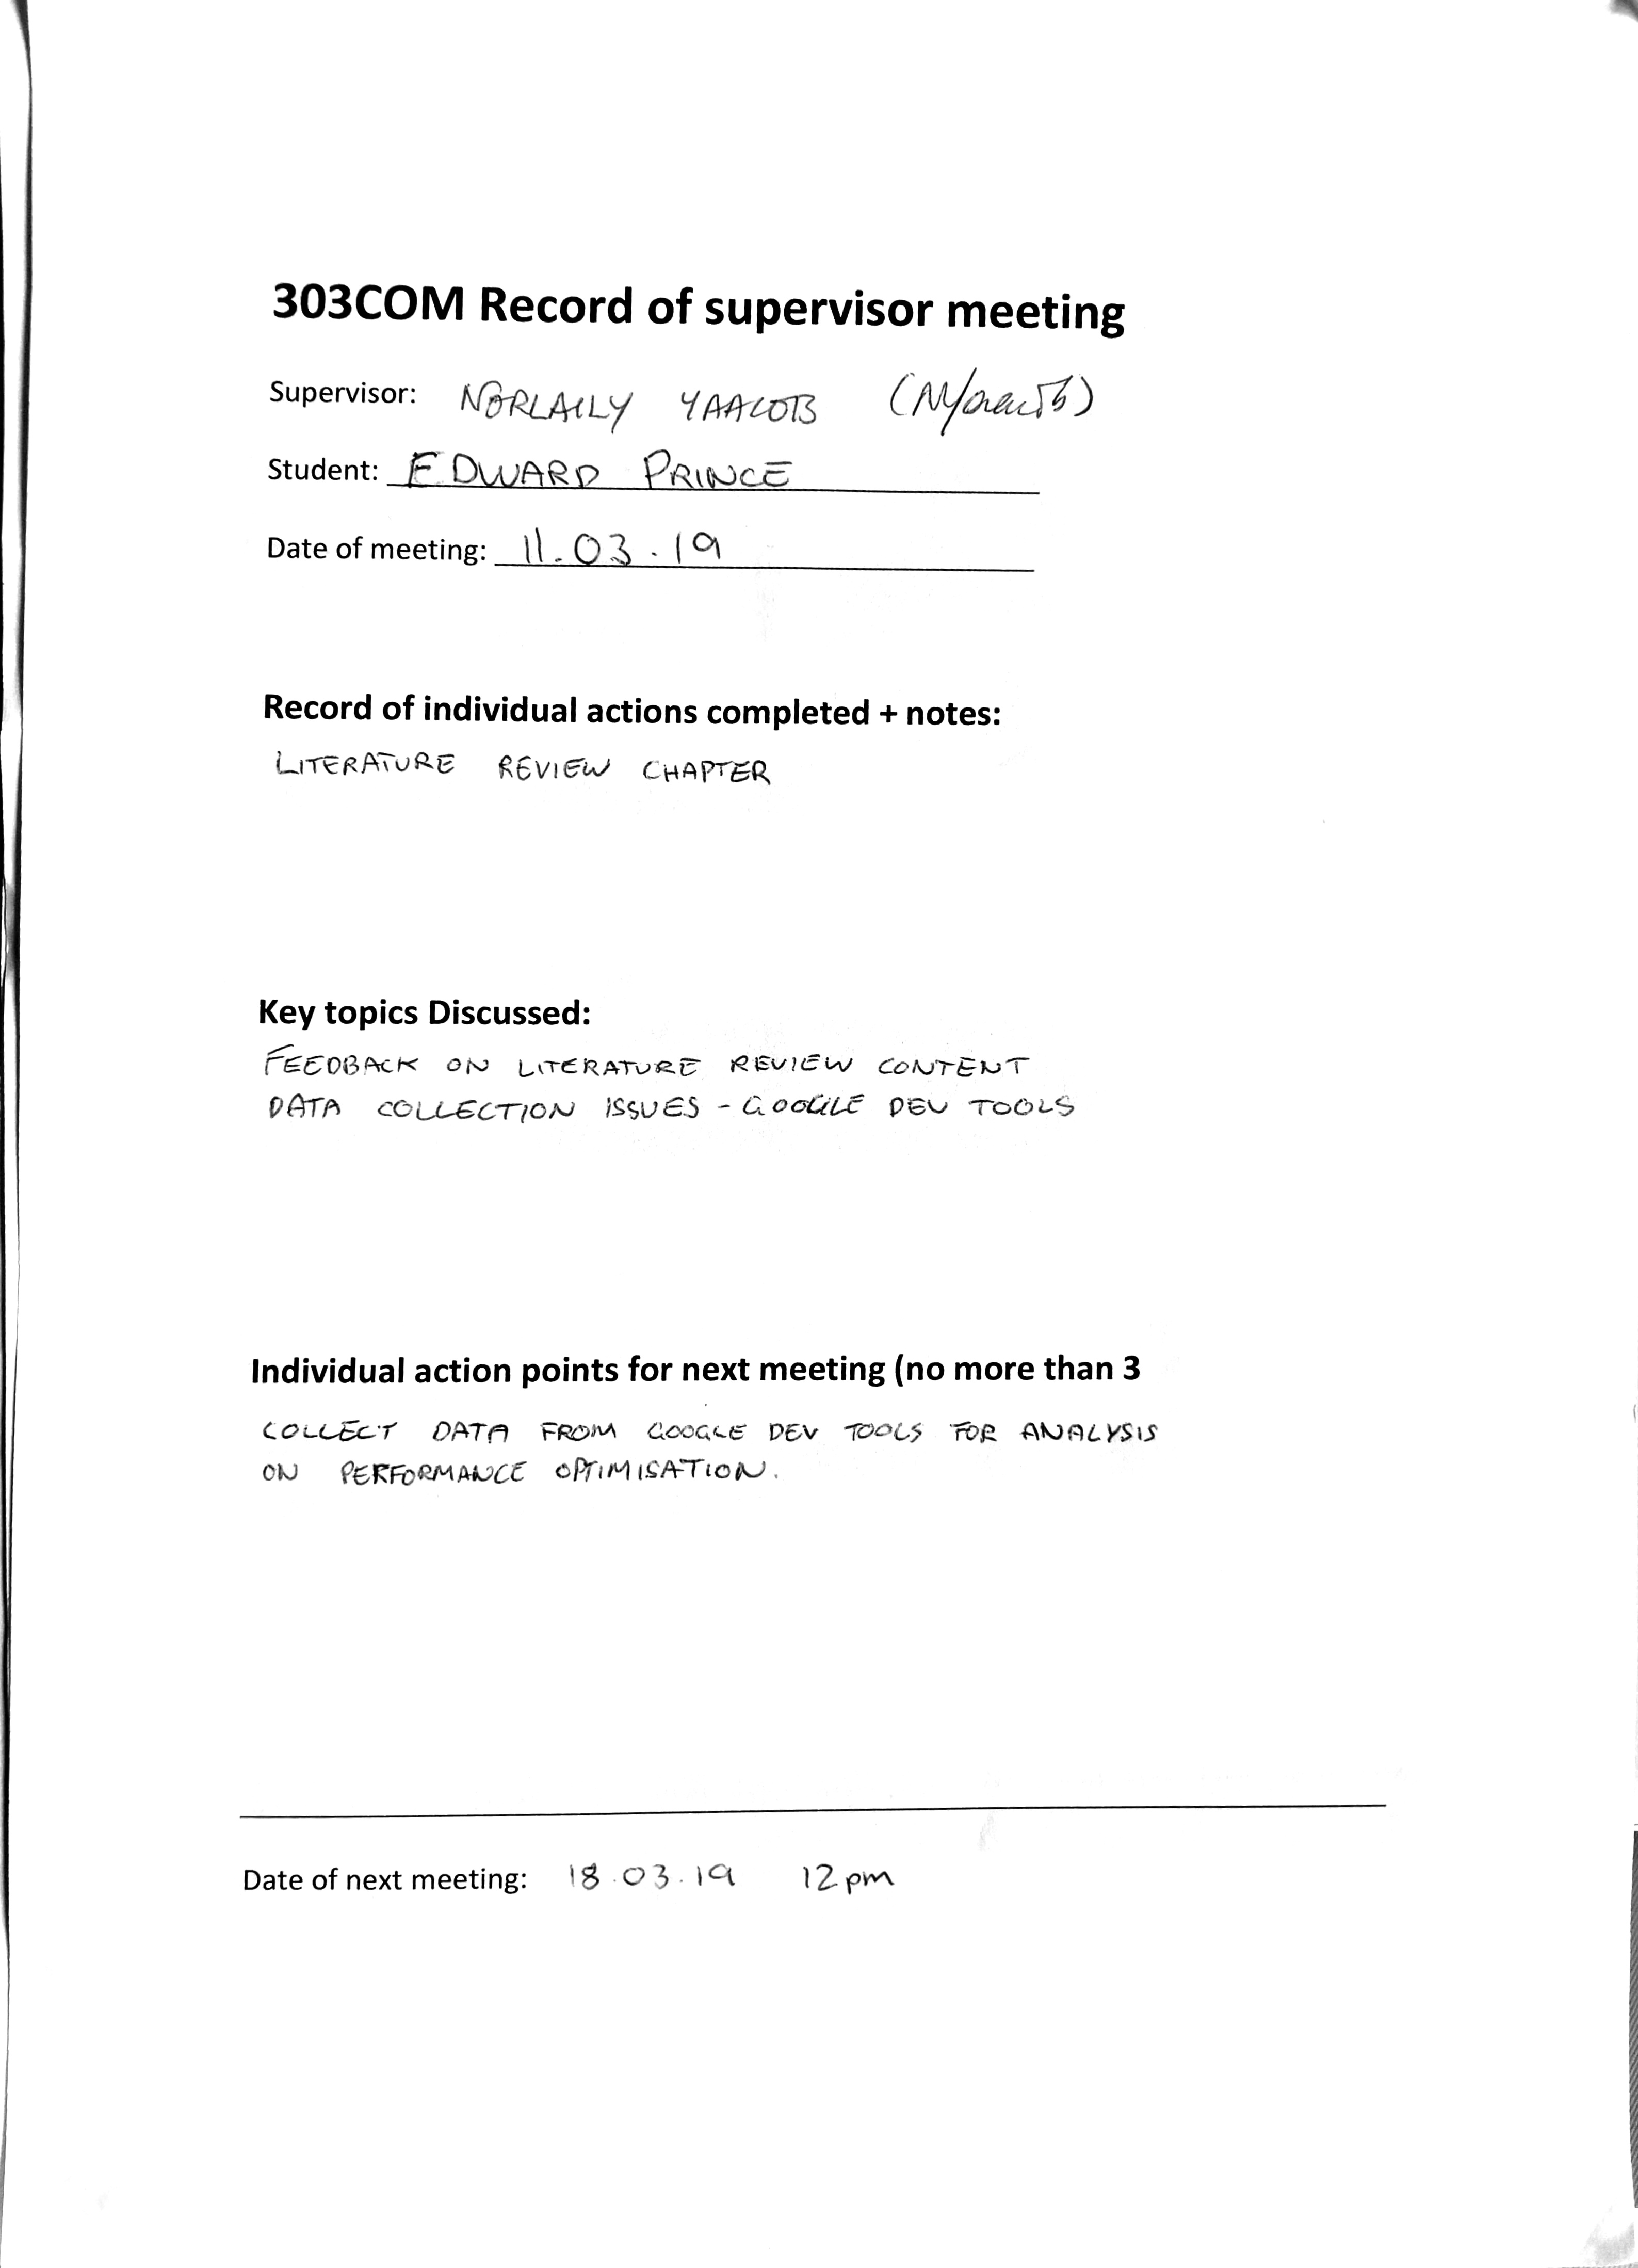 303COM Record of supervisor meeting
Supervisor: NORLAILY YAACOB
Student: EDWARD PRINCE
Date of meeting: 11.03.19
Record of individual actions completed + notes:
LITERATURE REVIEW CHAPTER
Key topics Discussed:
FEEDBACK ON LITERATURE REVIEW CONTENT
DATA COLLECTION ISSUES - GOOGLE DEV TOOLS
Individual action points for next meeting (no more than 3
COLLECT DATA FROM GOOGLE DEV TOOLS FOR ANALYSIS
ON PERFORMANCE OPTIMISATION.
Date of next meeting: 18.03.19 12pm